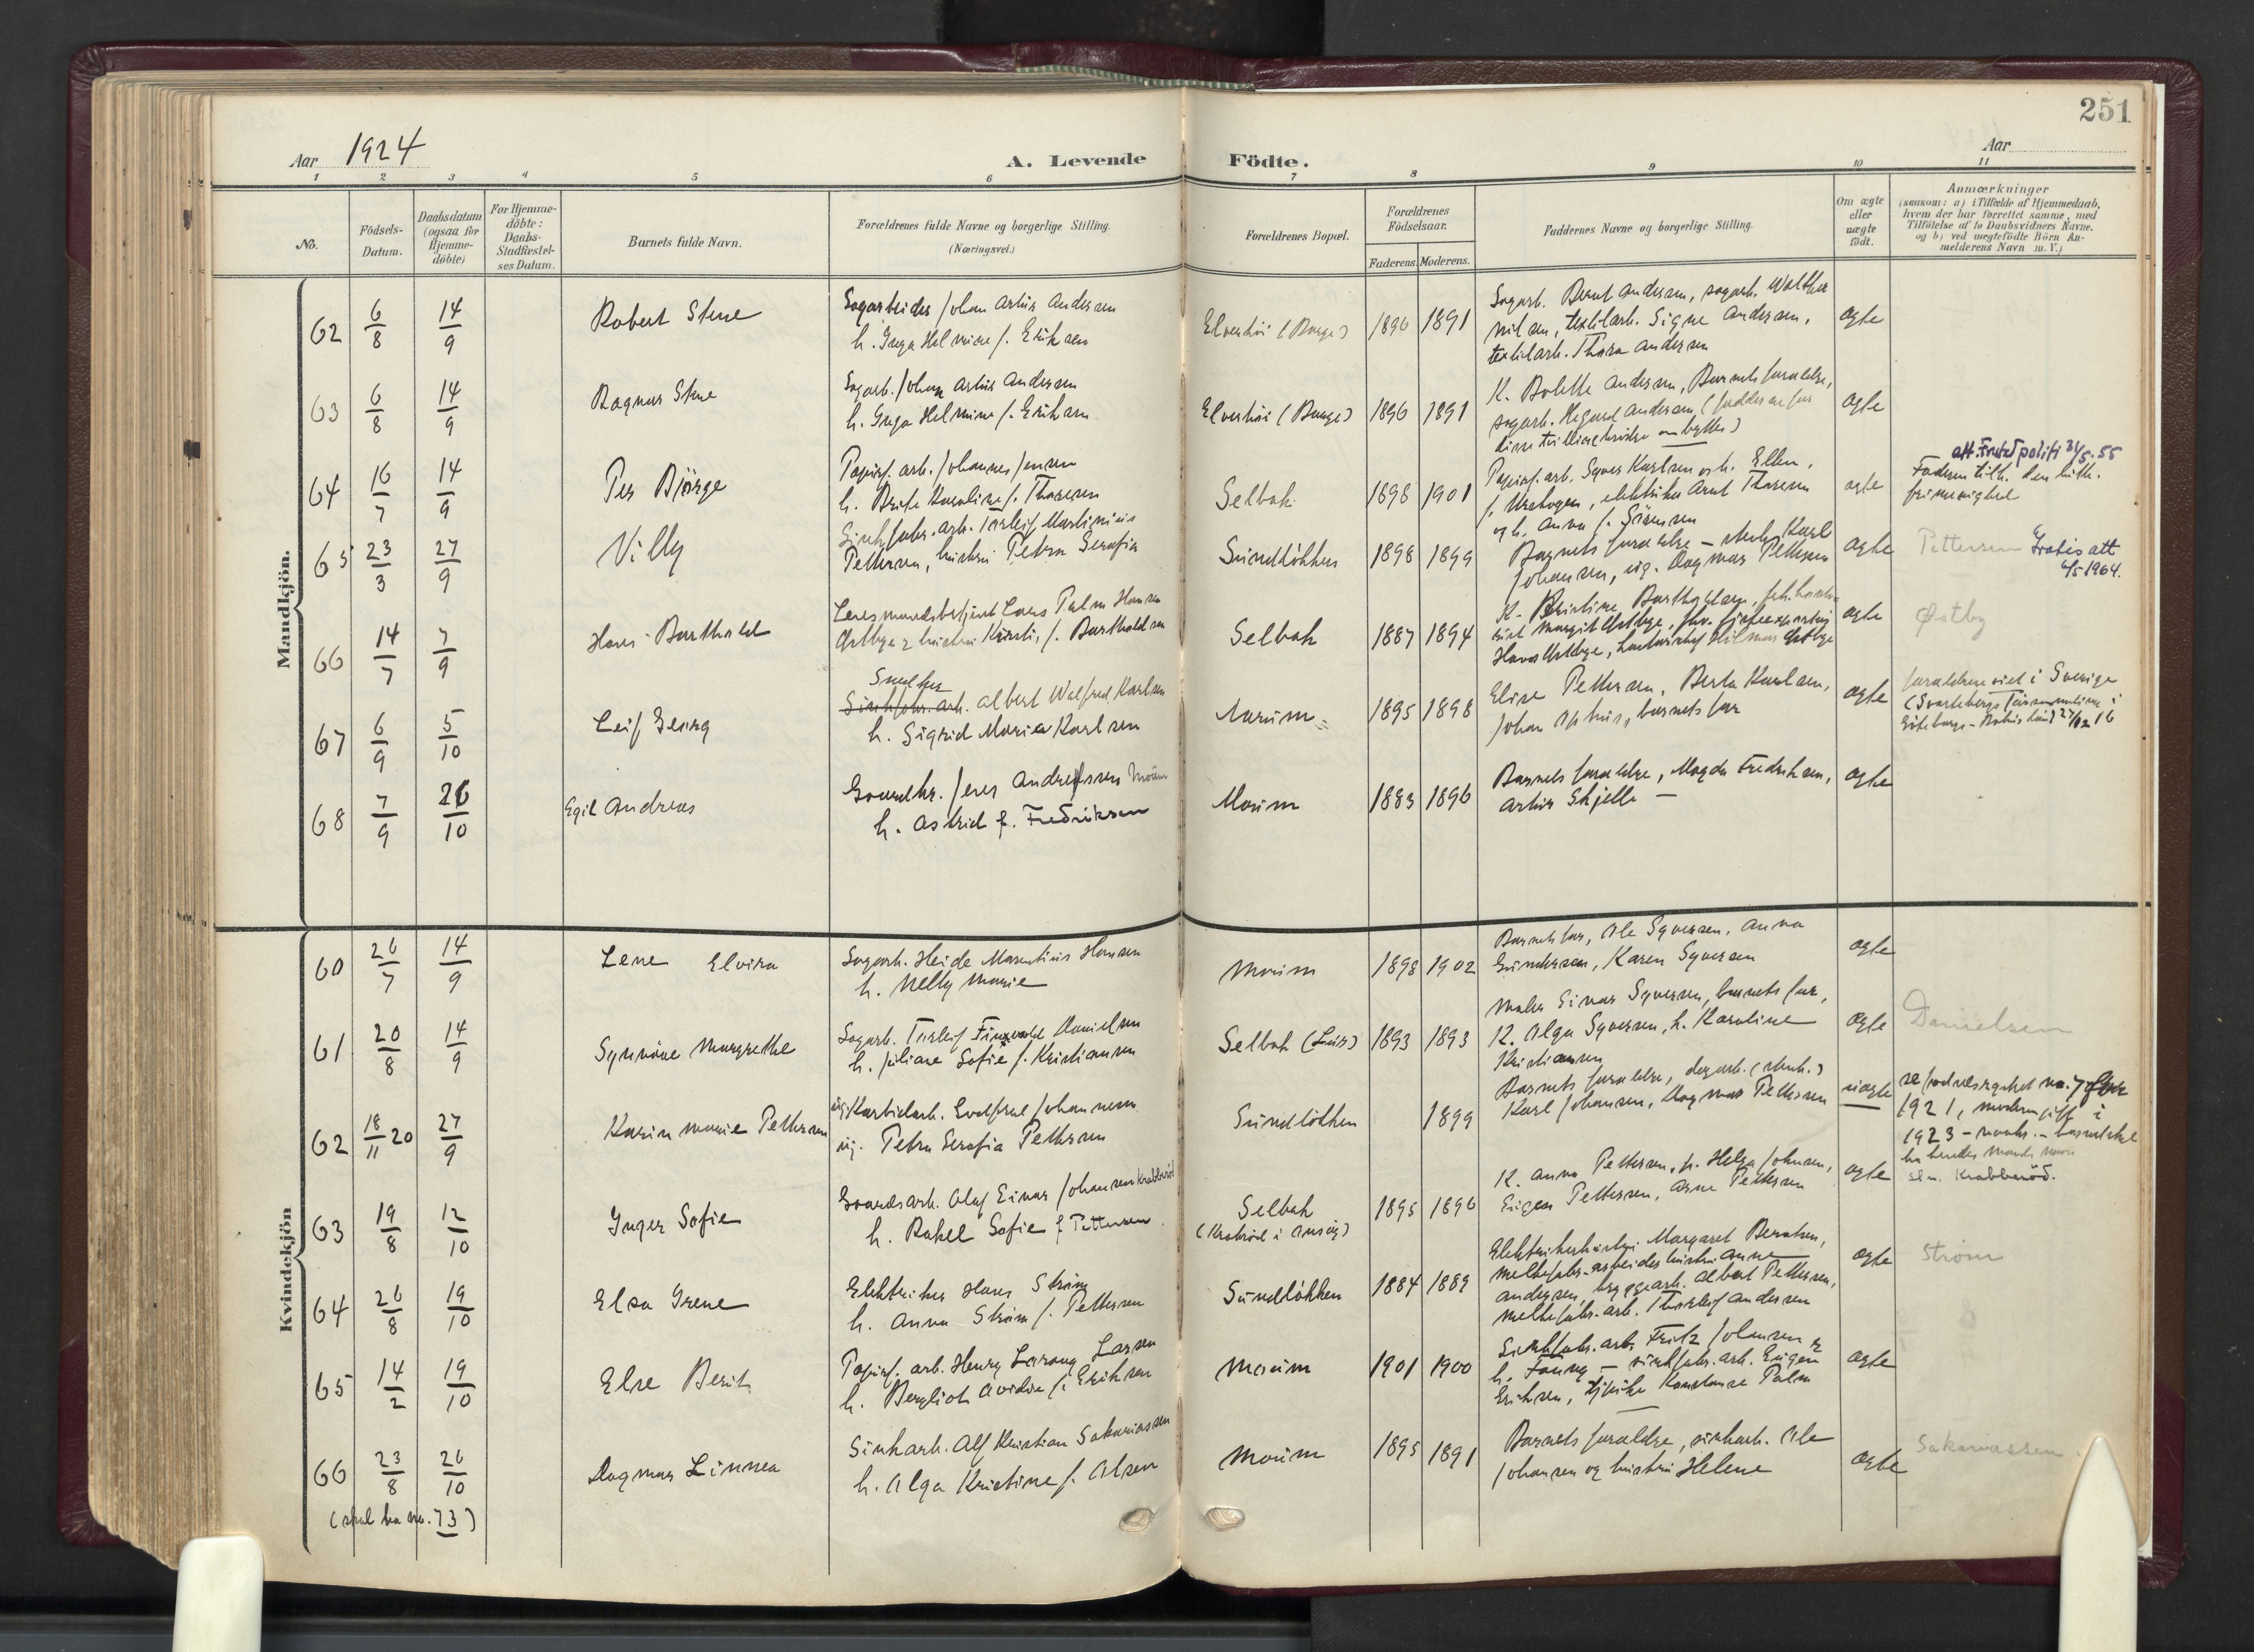 251
Aar 1924
A. Levende
Födte.
Aar
1 2 3 4 5 6 7 8 9 10 11
No.
Födsels-
Datum.
Daabsdatum
(ogsaa for
Hjemme-
döbte)
For Hjemme-
döbte:
Daabs-
Stadfæstel-
ses Datum.
Barnets fulde Navn.
Forældrenes fulde Navne og borgerlige Stilling.
(Næringsvei.)
Forældrenes Bopæl.
Forældrenes
Födselsaar.
Faderens.
Moderens.
Faddernes Navne og borgerlige Stilling.
Om ægte
eller
uægte
födt.
Anmærkninger
(saasom: a) i Tilfælde af Hjemmedaab,
hvem der har forrettet samme, med
Tilföielse af to Daabsvidners Navne.
og b) ved uægtefödte Börn An-
melderens Navn m.V.)
Mandkjön.
62 6/8 14/9 Robert Stene
Sagarbeider Johan Artur Andersen
h. Inga Helmine f. Eriksen
Elvestöi (Borge) 1896 1891
Sagarb. Bernt Andersen, sagarb. Walther
Nilsen, textilarb. Signe Andersen,
textilarb. Thora Andersen
ægte
63 6/8 14/9 Ragnar Stene
Sagarb. Johan Artur Andersen
h. Inga Helmine f. Eriksen
1896 1891
K. Bolette Andersen, Barnets forældre,
sagarb. Andersen (fadderne for
disse tvillingbrödre ombyttes)
ægte
64 16/7 14/9 Per Björge
Papirf. arb. Johannes Jensen
h. Karoline f. Thoresen
Selbak 1898 1901
Papirf. arb. Syver Karlsen og h. Ellen,
elektriker Arnt Thoresen
og h. Anna f. Sörensen
ægte
att. politi 31/5-55
Faderen tilh. den luth.
frimenighed
65 23/3 27/9 Villy
Sinkfabr. arb. Torleif Martinius
Pettersen, hustru Petra Serafia
Sundlökken 1898 1899
Barnets forældre – Karl
Johansen, Dagmar Pettersen
ægte
Pettersen Gratis att
4/5 1964.
66 14/7 7/9 Hans Barthold
Lensmandsbetjent Lars Palm Hansen
Östbye & hustru Kirsti, f. Bartholdsen
Selbak 1887 1894
Margit Östbye,
Hans Östbye, Hilmar Östbye
ægte
Østby
67 6/9 5/10 Leif Georg
Snedker
Sinkfabr. arb. Albert Walfred Karlsen
h. Sigrid Maria Karlsen
1895 1898
Elise Pettersen, Berta Karlsen,
Johan barnets far
ægte
forældrene viet i Sverige
Göteborgs-Bohus län) 27/12 16
68 7/9 26/10 Egil Andreas
Jens Andreassen Moum
h. Astrid f. Fredriksen
Moum 1883 1896
Barnets forældre, Magda Fredriksen,
Artur Skjelle –
ægte
Kvindekjön
60 26/7 14/9 Lene Elvira
Sagarb. Heide Marentius Hansen
h. Nelly Marie
Moum 1898 1902
Barnets far, Ole Syversen, Anna
Gundersen, Karen Syversen
ægte
61 20/8 14/9 Synnöve Margrethe
Sagarb. Torleif Danielsen
h. Juliane Sofie f. Kristiansen
Selbak 1893 1893
Maler Einar Syversen, barnets far,
K. Olga Syversen, h. Karoline
Kristiansen
ægte
Danielsen
62 18/11 20 27/9 Karin Marie Pettersen
ug. Karbidarb. Johannesen
ug. Petra Serafia Pettersen
Sundlökken 1899
Barnets forældre,
Karl Johansen, Dagmar Pettersen
uægte
se födselsregistret no. 7
1921, moderen gift i
1923 –
ha hendes mands navn
63 19/8 12/10 Inger Sofie
Gaardsarb. Olaf Einar Johansen Krabberöd
h. Rakel Sofie f. Pettersen
Selbak
(Krabröd i Onsöy) 1895 1896
K. Anna Pettersen, fr. Helga Johnsen,
Eugen Pettersen, Arne Pettersen
ægte
sln. Krabberöd.
64 26/8 19/10 Elsa Irene
Elektriker Hans Ström
h. Anna Ström f. Pettersen
Sundlökken 1884 1889
Elektrikerhustru Margaret Berntsen,
melkefabr.arbeiderhustru Anne
Andersen, byggearb. Albert Pettersen,
melkefabr. arb. Thorleif Andersen
ægte
Ström
65 14/2 19/10 Else Berit
Papirf. arb. Henry Larsen
h. Bergliot Ovidia f. Eriksen
Moum 1901 1900
Sinkfabr. arb. Fritz Johansen &
h. Fanny – sinkfabr. arb. Eugen
Eriksen, Konstanse Palm
ægte
66 23/8 26/10 Dagmar Linnea
Sinkarb. Alf Kristian Sakariassen
h. Olga Kristine f. Olsen
Moum 1895 1891
Barnets forældre, sinkarb. Ole
Johansen og hustru Helene
ægte
Sakariassen
(skal ha no. 73)